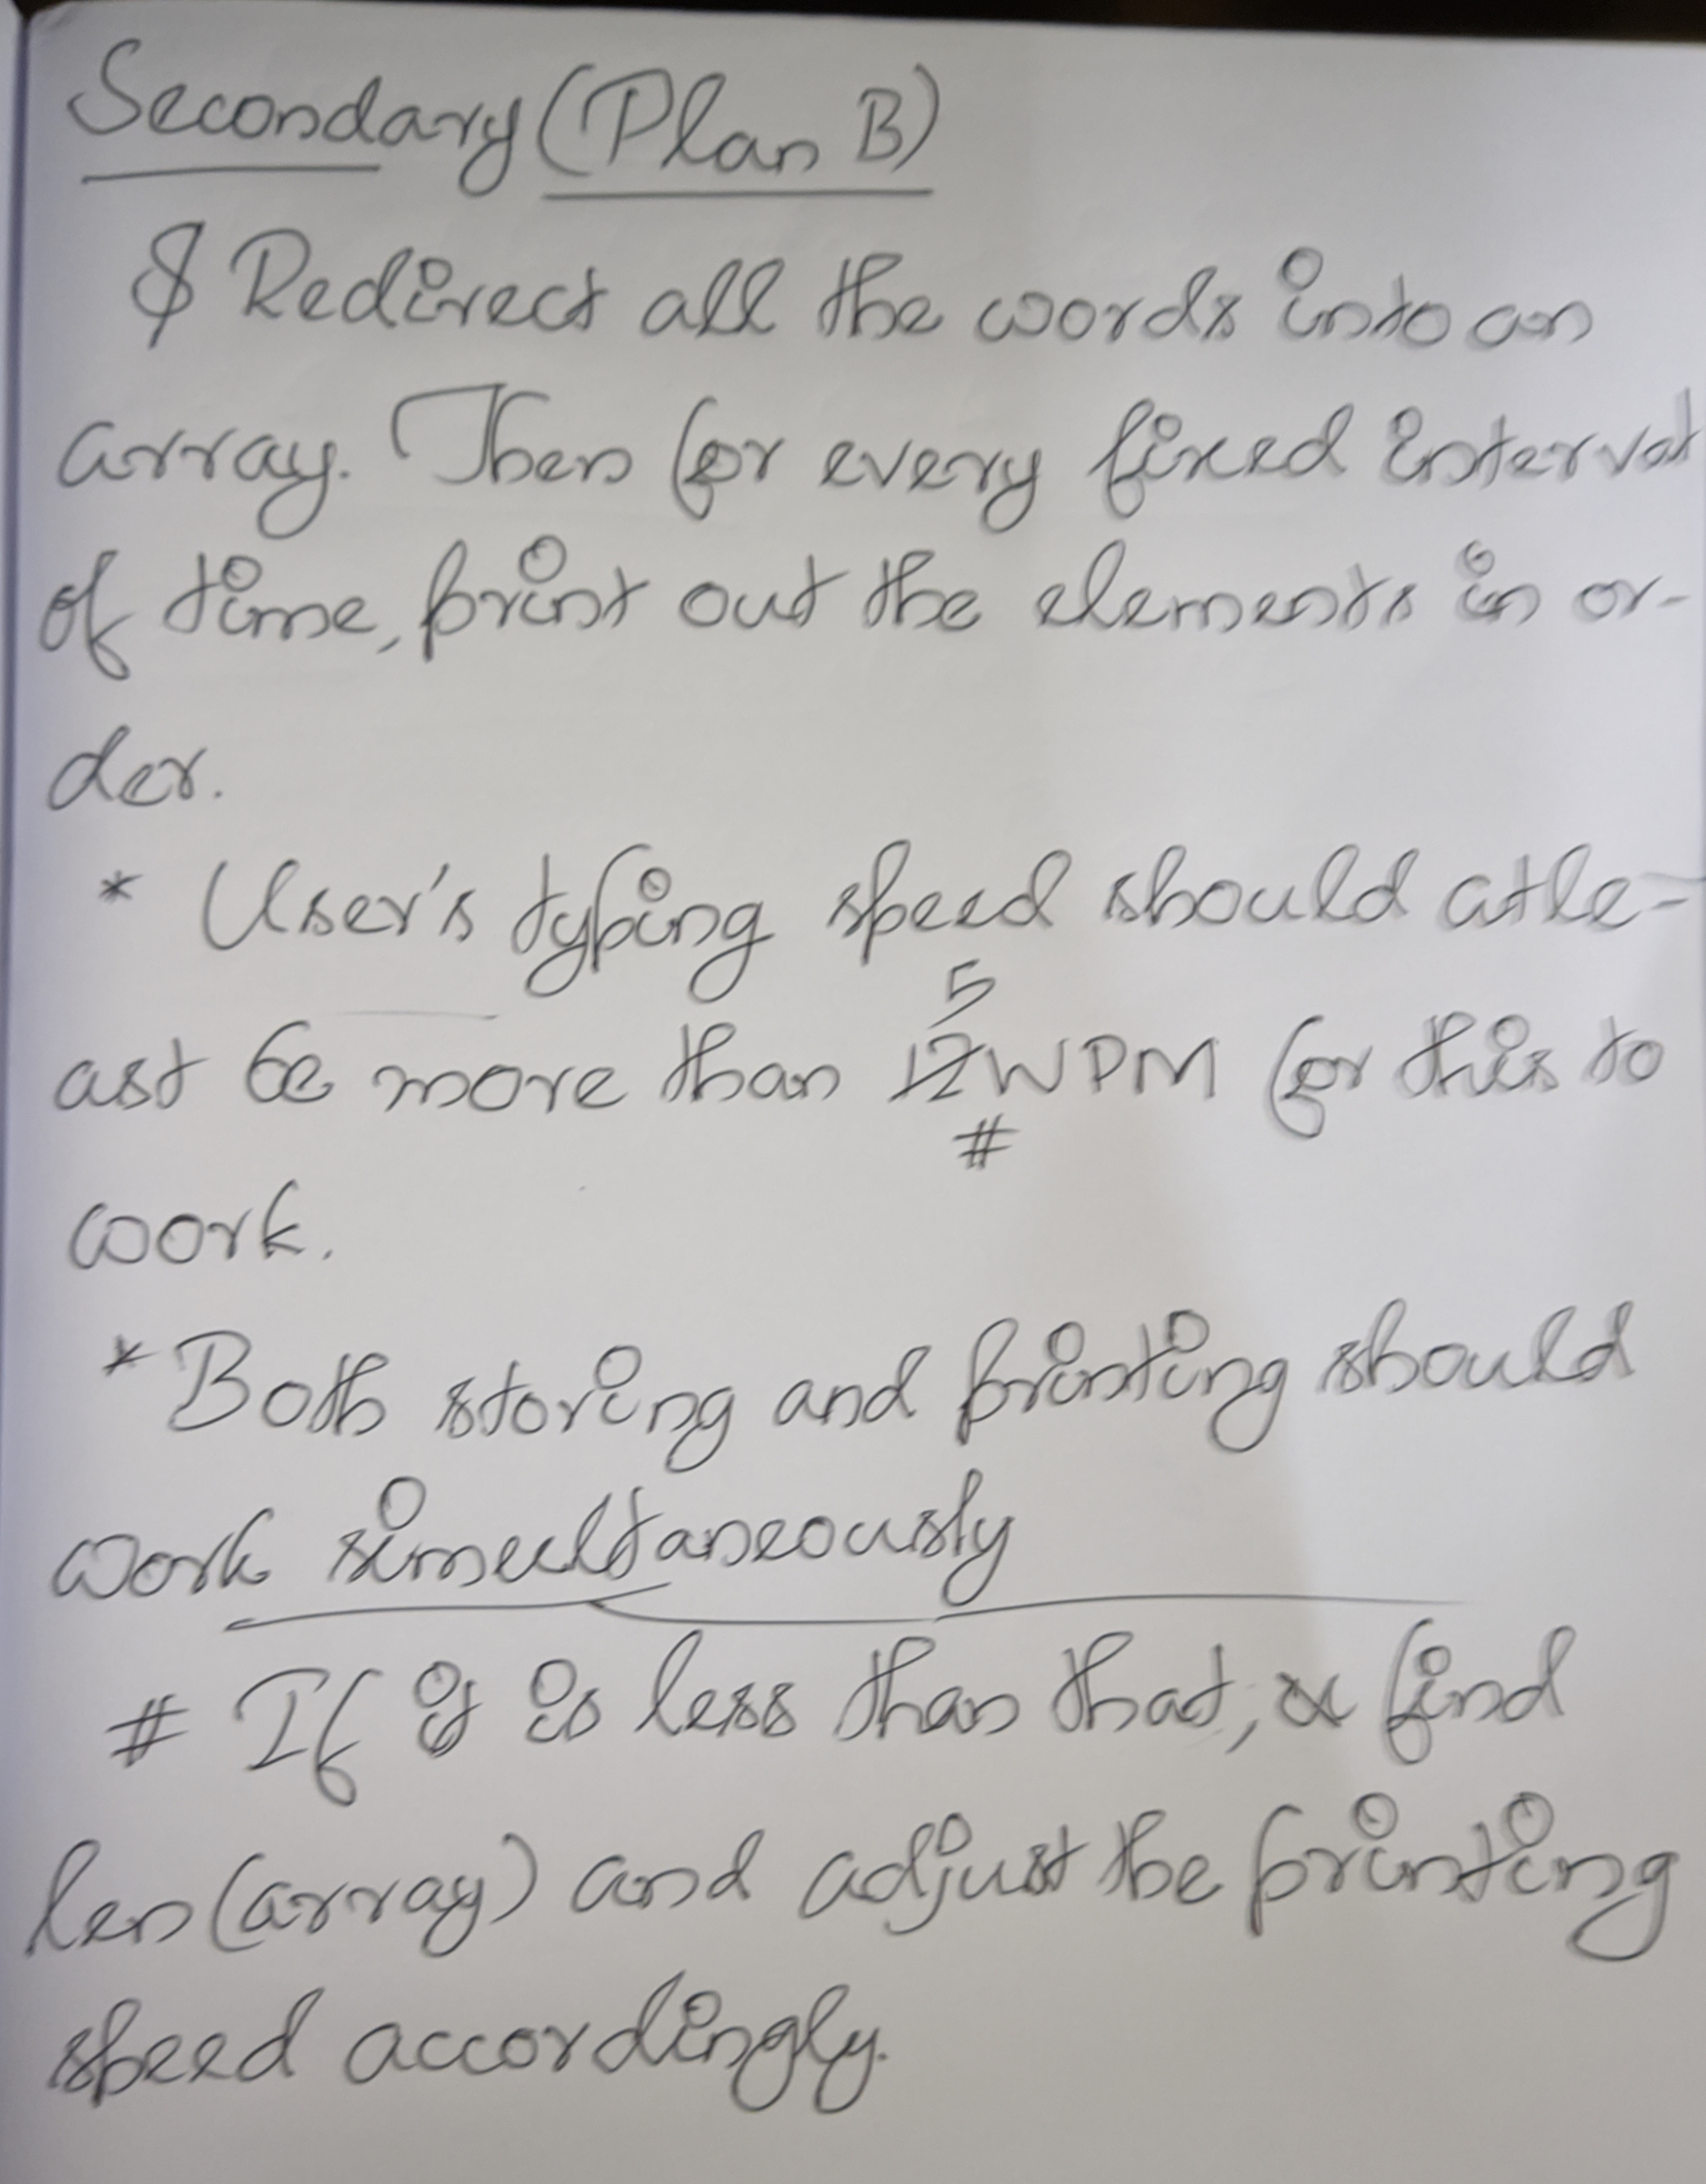 Secondary (Plan B)
$ Redirect all the words into an
array. Then for every fixed interval
of time, print out the elements in or-
der.
* User's typing speed should atle-
5
ast be more than 12 WPM for this to
#
work.
* Both storing and printing should
work simultaneously
# If it is less than that, find
len(array) and adjust the printing
speed accordingly.